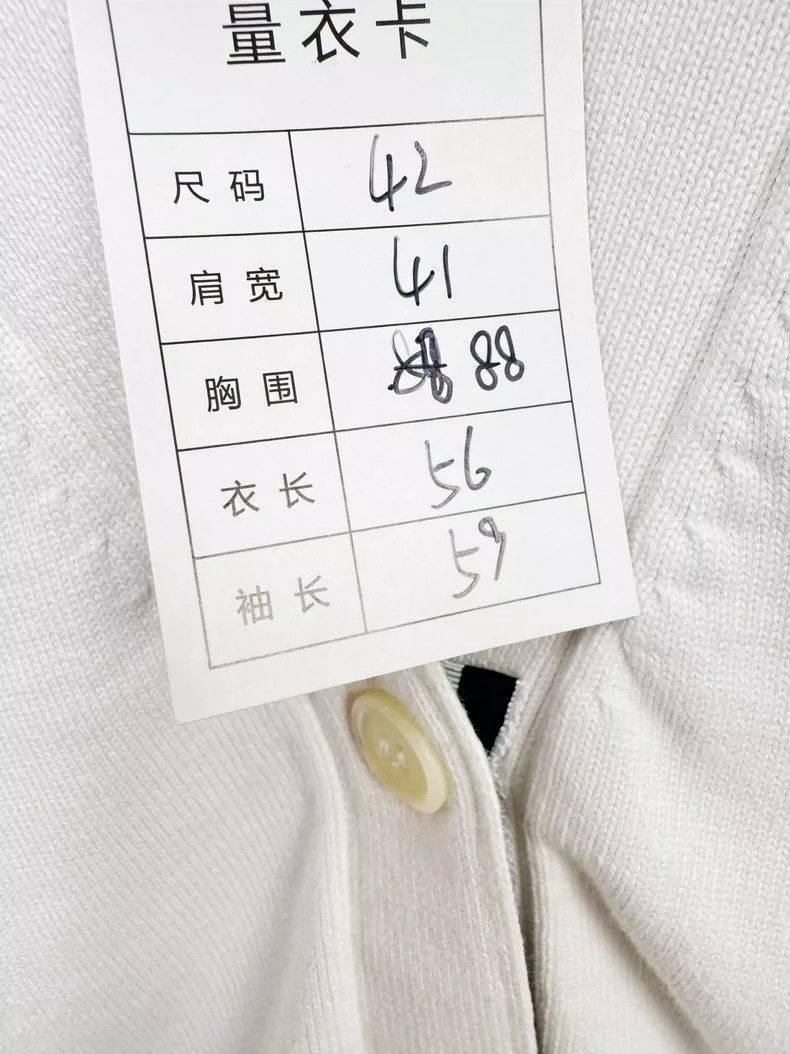 量衣卡
尺码 42
肩宽 41
胸围 88
衣长 56
袖长 59